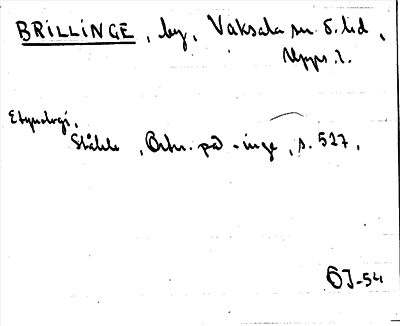 BRILLINGE, by, Vaksala sn. ö. lid,
Upps. l.
Etymologi.
Ståhle, Ortn. på -inge, s. 527.
ÖJ-54